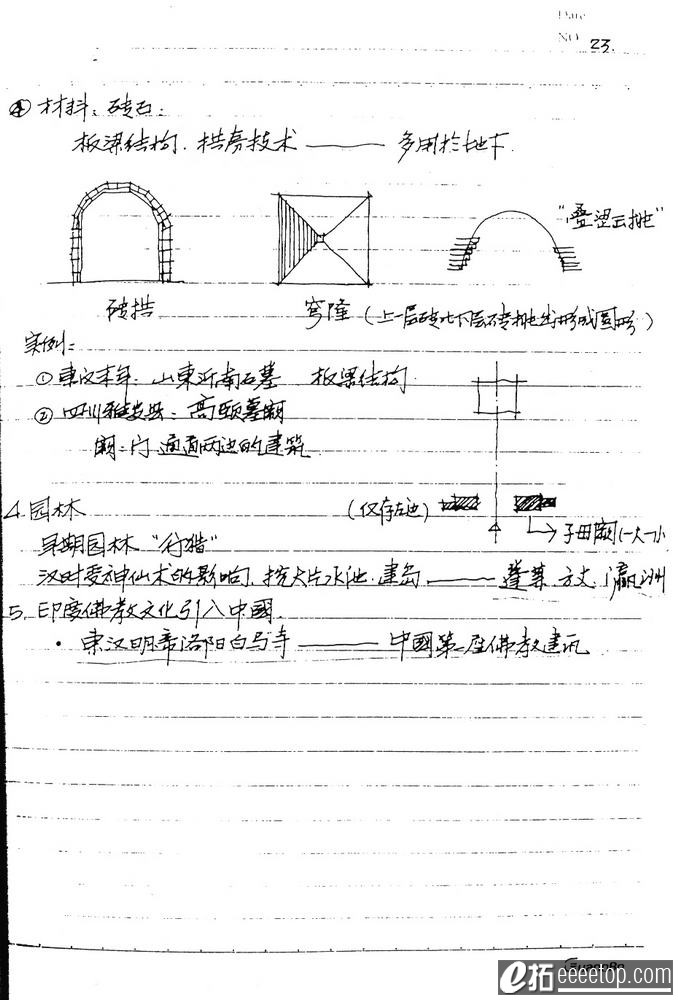 Date
NO 23.
④材料:砖石:
板梁结构.拱券技术——多用於地下.
"叠涩云挑"
砖拱
穹隆(上一层砖比下层砖挑出形成圆形)
实例:
①東汉末年.山東沂南石墓 板梁结构
②四川雅安县:高颐墓闕
闕:门、通道两边的建筑
4.园林
(仅存左边)
子母闕(一大一小
早期园林"行猎"
汉时受神仙术的影响.挖大片水池.建岛——蓬莱.方丈.瀛洲
5.印度佛教文化引入中國.
·東汉明帝洛阳白马寺——中國第一座佛教建筑
GuangBo
e拓eeeetop.com